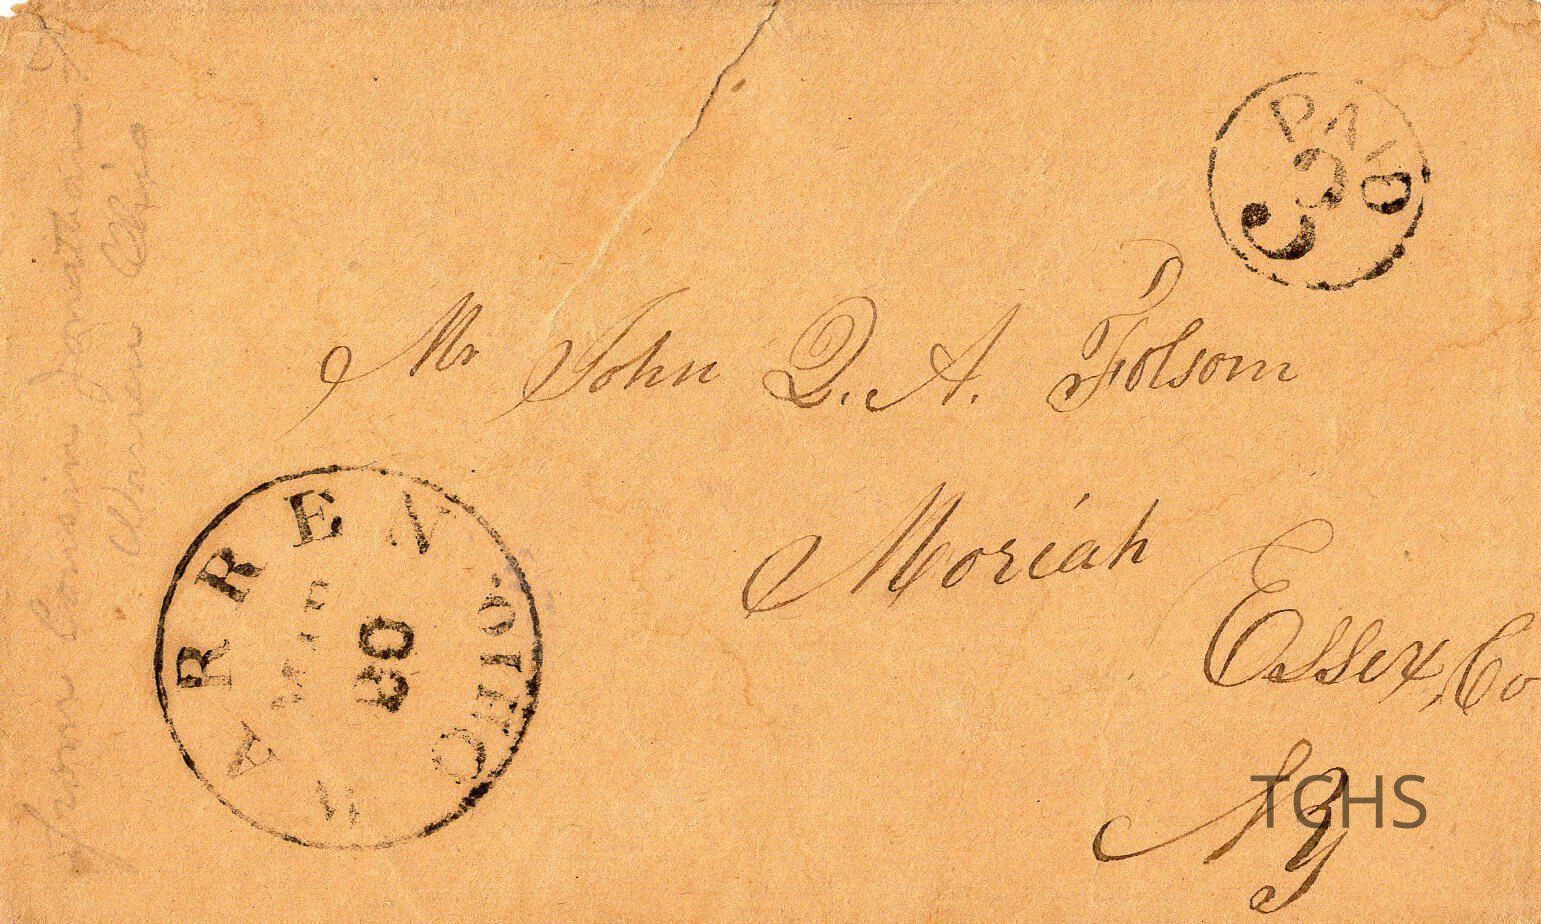 from Cousin Jonathan
Warren Ohio
PAID
3
Mr John Q. A. Folsom
Moriah
Essex, Co
NY
WARREN OHIO.
TCHS